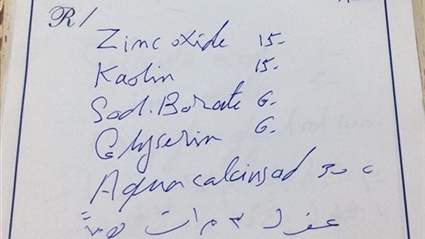 R/
Zinc oxide 15.
Kaolin 15.
Sod. Borate 6.
Glyserin 6.
Aqua calcinsad 30 c
مرات